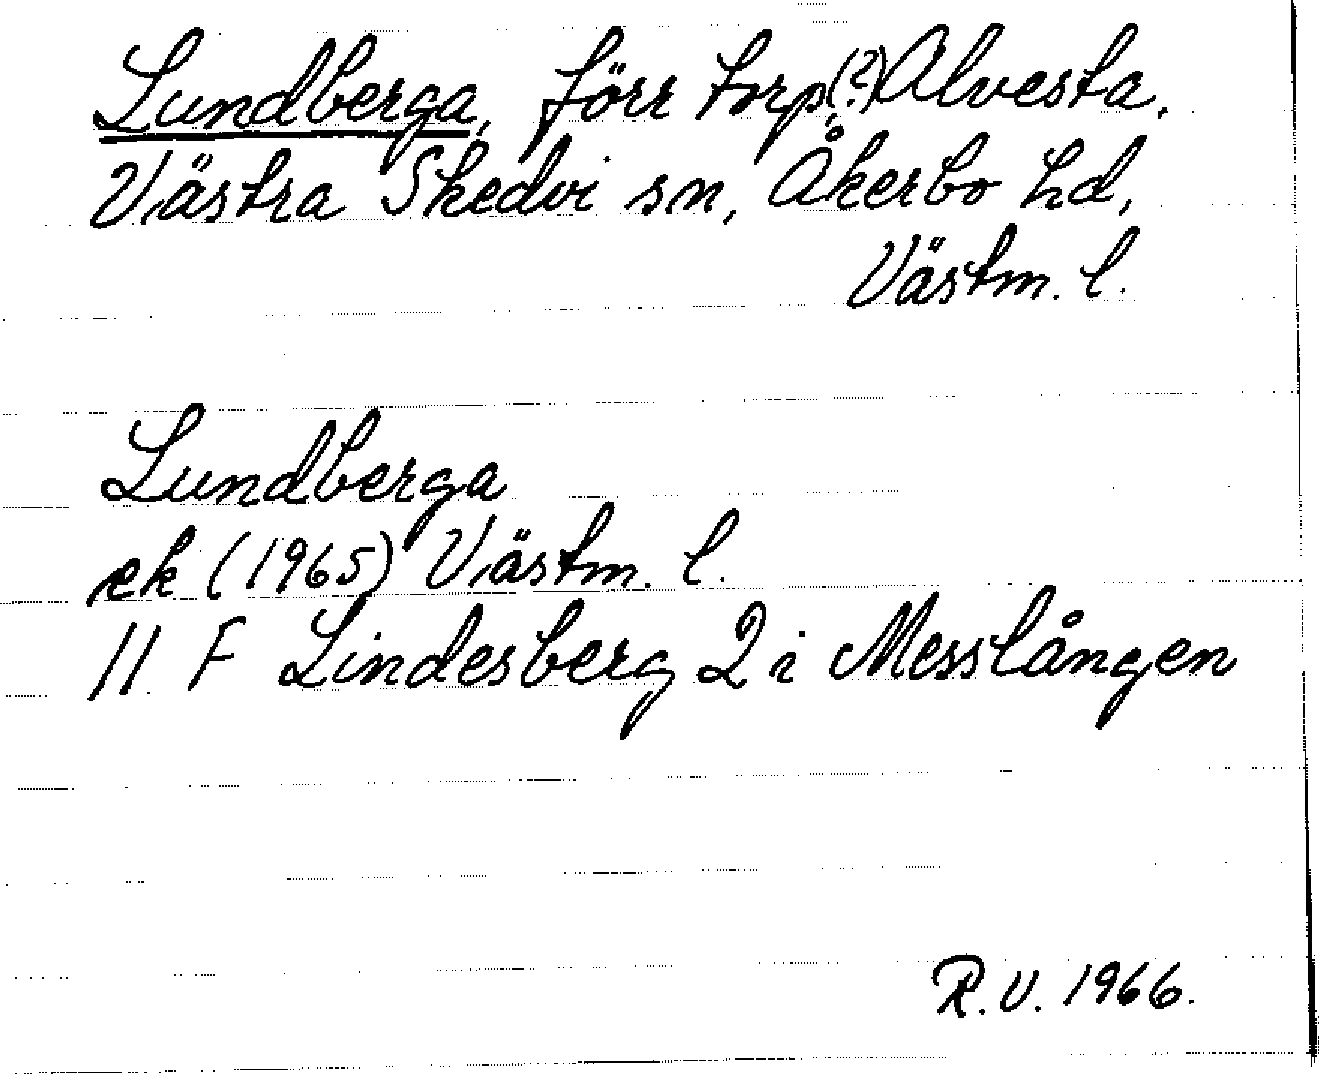 Lundberga, förr torp(?) Alvesta,
Västra Skedvi sn, Åkerbo hd,
Västm. l.
Lundberga
ek (1965) Västm. l.
11 F Lindesberg 2 i Messlången
R.V. 1966.